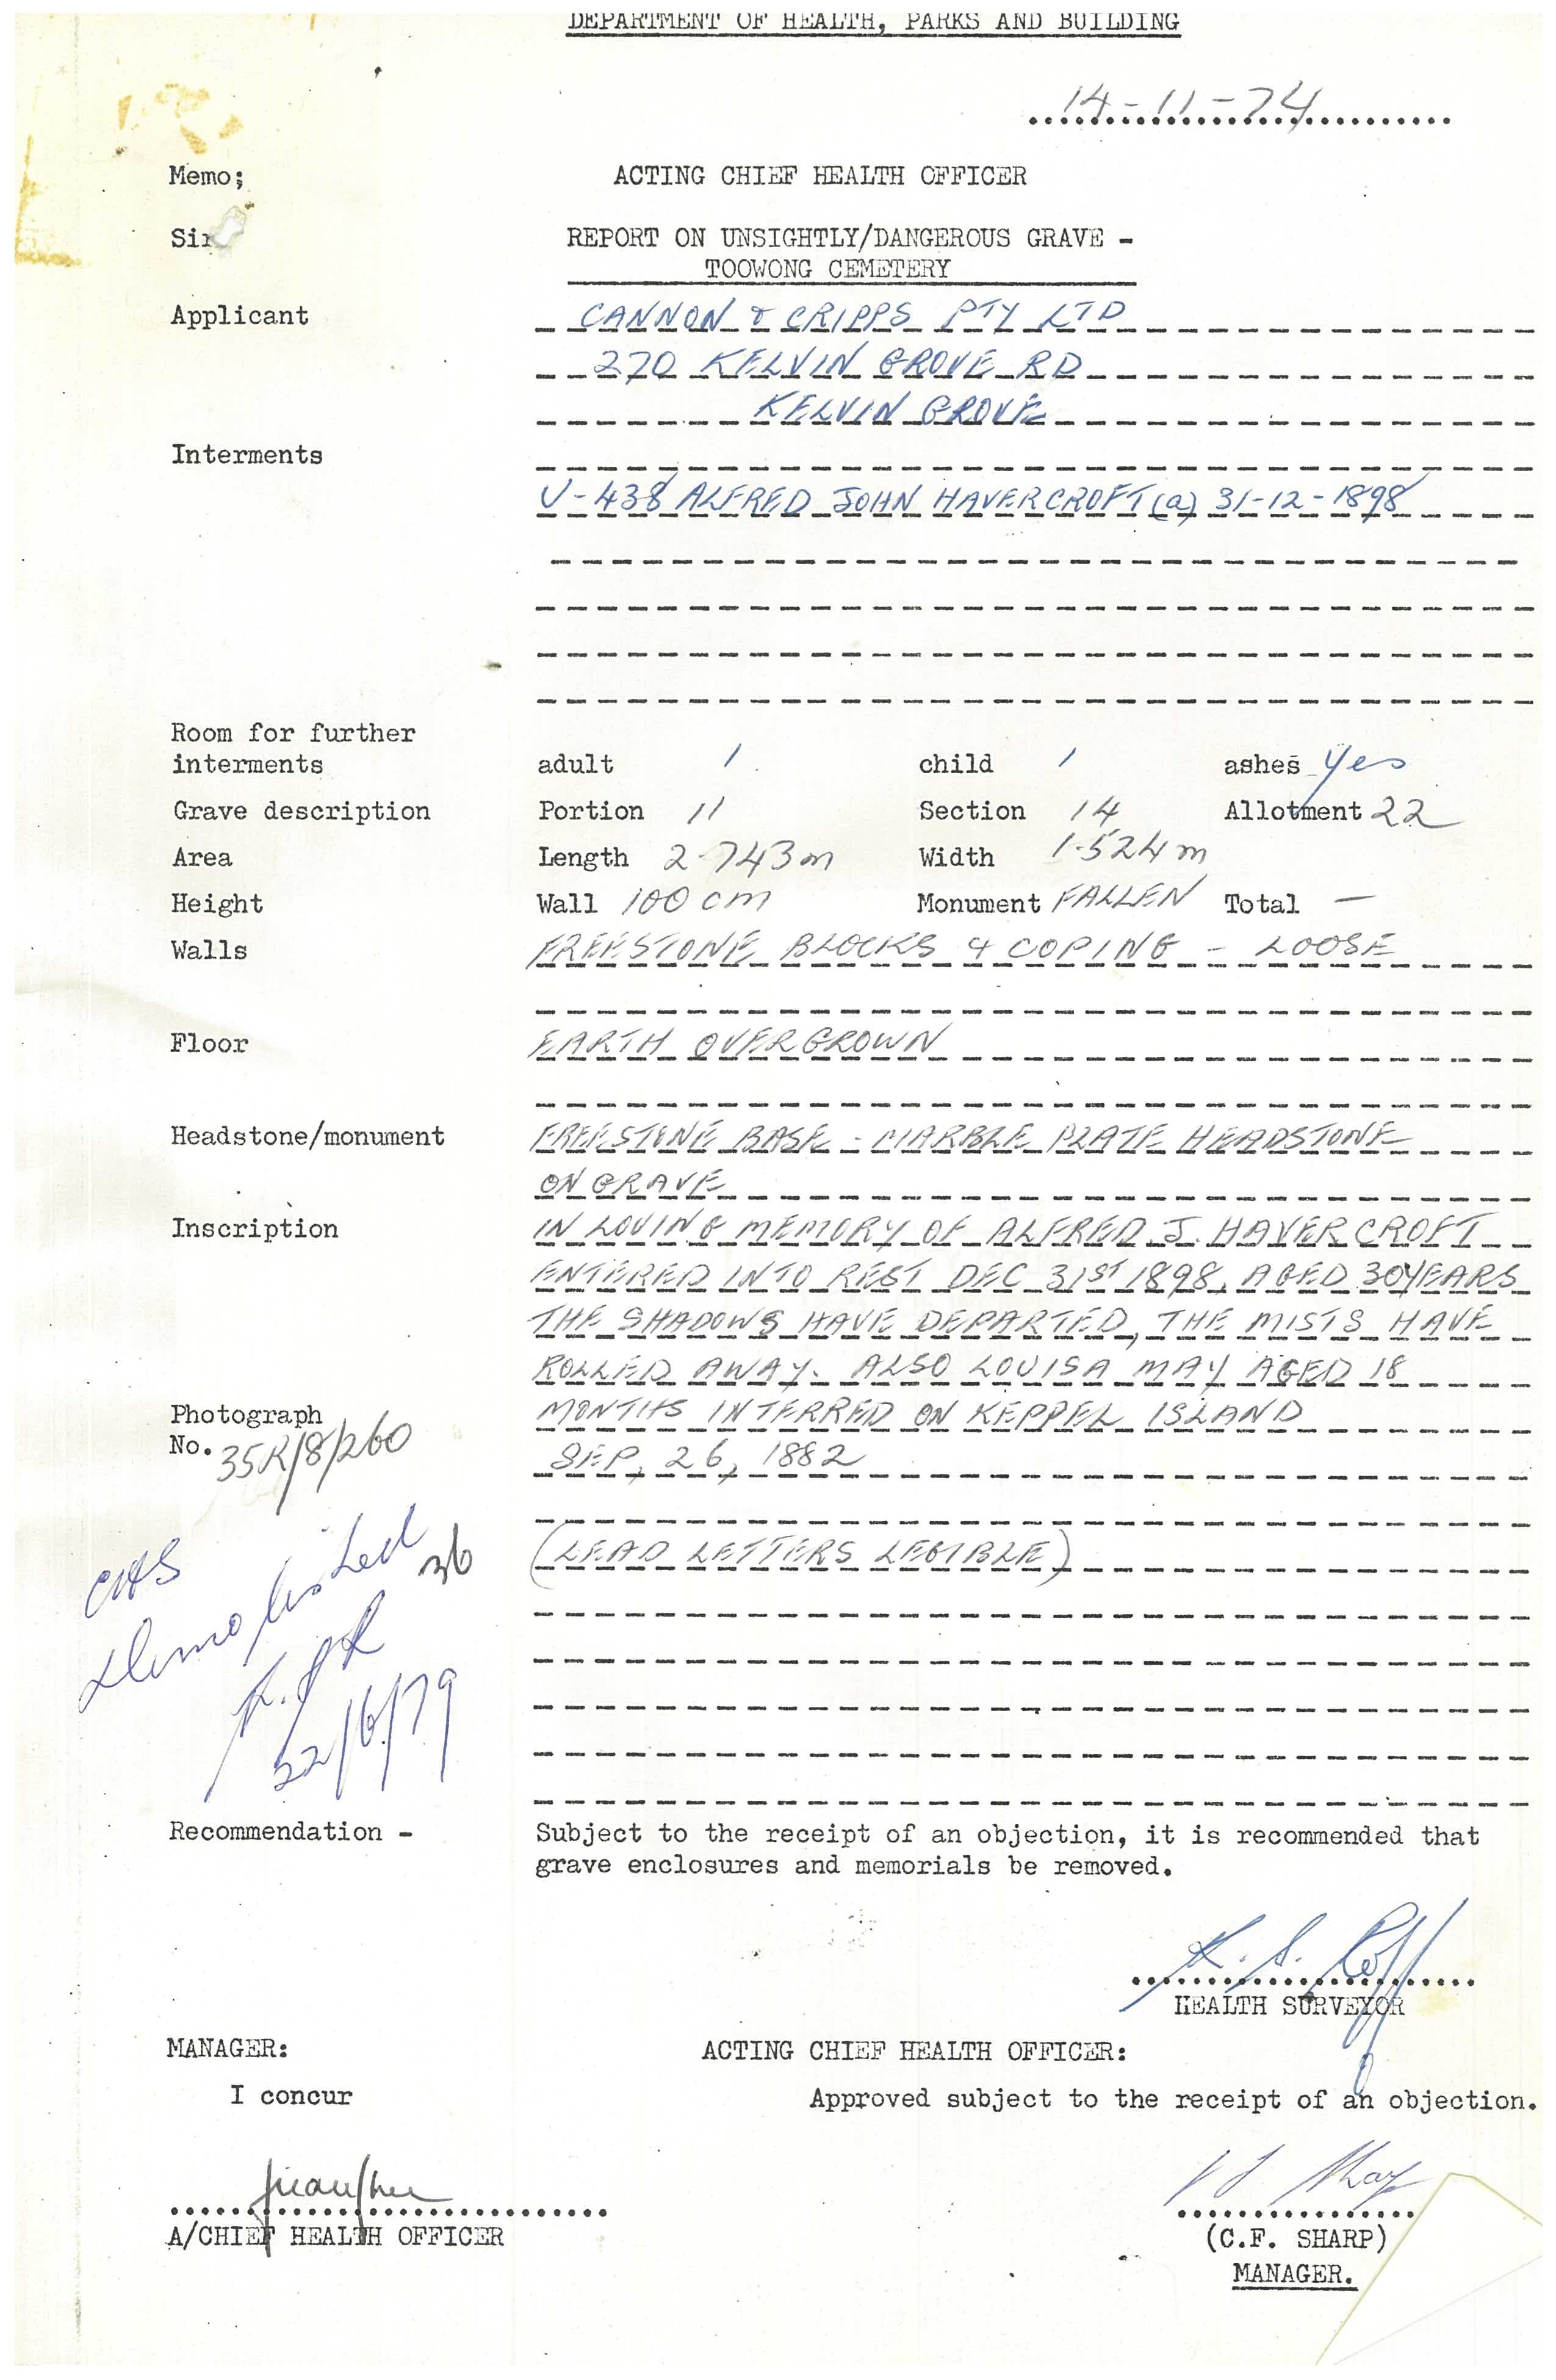 DEPARTMENT OF HEALTH, PARKS AND BUILDING
14-11-74
Memo; ACTING CHIEF HEALTH OFFICER
Sir REPORT ON UNSIGHTLY/DANGEROUS GRAVE -
TOOWONG CEMETERY
Applicant CANNON & CRIPPS PTY LTD
270 KELVIN GROVE RD
KELVIN GROVE
Interments
U-438 ALFRED JOHN HAVERCROFT (a) 31-12-1898
Room for further
interments adult 1 child 1 ashes Yes
Grave description Portion 11 Section 14 Allotment 22
Area Length 2.743m Width 1.524m
Height Wall 100 cm Monument FALLEN Total —
Walls FREESTONE BLOCKS & COPING - LOOSE
Floor EARTH OVERGROWN
Headstone/monument FREESTONE BASE - MARBLE PLATE HEADSTONE
ON GRAVE
Inscription IN LOVING MEMORY OF ALFRED J. HAVERCROFT
ENTERED INTO REST DEC 31ST 1898, AGED 30 YEARS
THE SHADOWS HAVE DEPARTED, THE MISTS HAVE
ROLLED AWAY. ALSO LOUISA MAY AGED 18
Photograph MONTHS INTERRED ON KEPPEL ISLAND
No. 35R/8/260 SEP, 26, 1882
36
(LEAD LETTERS LEGIBLE)
Demolished
22/6/79
Recommendation - Subject to the receipt of an objection, it is recommended that
grave enclosures and memorials be removed.
K. S. Roff
HEALTH SURVEYOR
MANAGER: ACTING CHIEF HEALTH OFFICER:
I concur Approved subject to the receipt of an objection.
A/CHIEF HEALTH OFFICER (C.F. SHARP)
MANAGER.